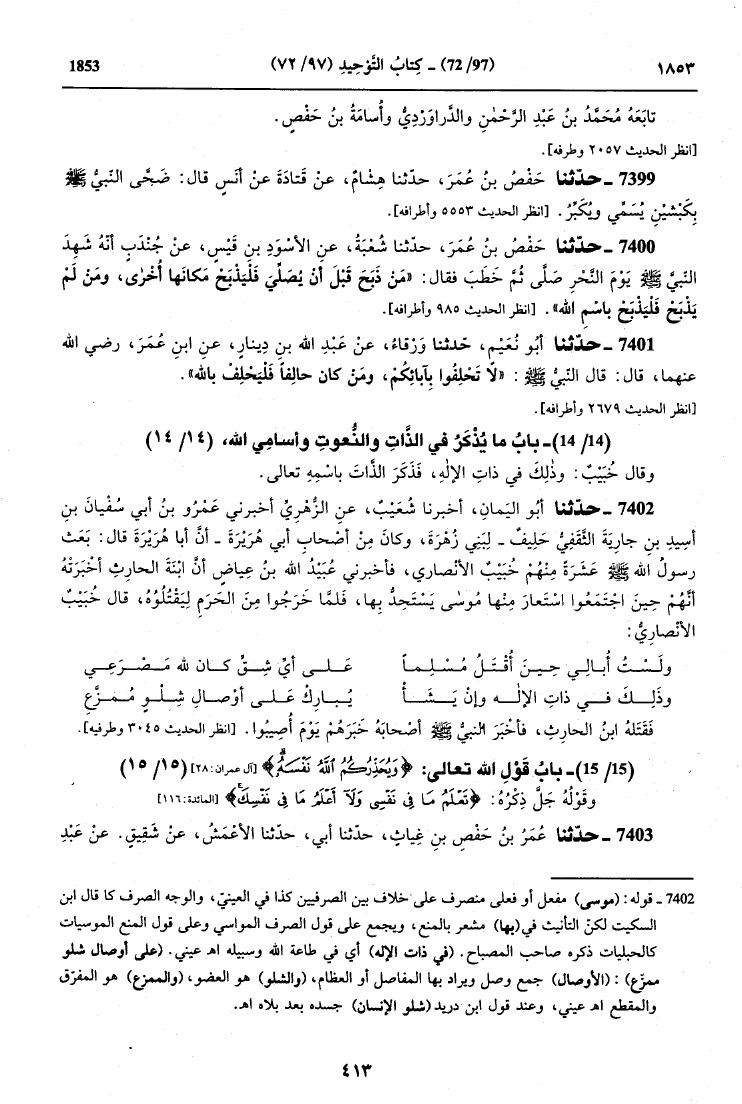 ١٨٥٣ (72/97) ـ كِتابُ التَّوْحِيدِ (٩٧/ ٧٢) 1853
تابَعَهُ مُحَمَّدُ بنُ عَبْدِ الرَّحْمٰنِ والدَّراوَرْدِيُّ وأُسامَةُ بنُ حَفْصٍ.
[انظر الحديث ٢٠٥٧ وطرفه].
7399 ـ حدّثنا حَفْصُ بنُ عُمَرَ، حدّثنا هِشامٌ، عنْ قَتادَةَ عنْ أنَسٍ قال: ضَحَّى النَّبِيُّ ﷺ
بِكَبْشَيْنِ يُسَمِّي ويُكَبِّرُ. [انظر الحديث ٥٥٥٣ وأطرافه].
7400 ـ حدّثنا حَفْصُ بنُ عُمَرَ، حدّثنا شُعْبَةُ، عنِ الأسْوَدِ بنِ قَيْسٍ، عنْ جُنْدَبٍ أنَّهُ شَهِدَ
النبيَّ ﷺ يَوْمَ النَّحْرِ صَلَّى ثُمَّ خَطَبَ فقال: «مَنْ ذَبَحَ قَبْلَ أنْ يُصَلِّيَ فَلْيَذْبَحْ مَكانَها أُخْرٰى، ومَنْ لَمْ
يَذْبَحْ فَلْيَذْبَحْ باسْمِ الله». [انظر الحديث ٩٨٥ وأطرافه].
7401 ـ حدّثنا أبُو نُعَيْمٍ، حَدثنا وَرْقاءُ، عنْ عَبْدِ الله بنِ دِينارٍ، عنِ ابنِ عُمَرَ، رضي الله
عنهما، قال: قال النَّبِيُّ ﷺ: «لاَ تَحْلِفُوا بِآبائِكُمْ، ومَنْ كان حالِفاً فَلْيَحْلِفْ بالله».
[انظر الحديث ٢٦٧٩ وأطرافه].
(14/ 14)ـ بابُ ما يُذْكَرُ في الذَّاتِ والنُّعوتِ وأسامِي الله، (١٤/ ١٤)
وقال خُبَيْبٌ: وذٰلِكَ في ذاتِ الإلٰهِ، فَذَكَرَ الذَّاتَ باسْمِهِ تعالى.
7402 ـ حدّثنا أبُو اليَمانِ، أخبرنا شُعَيْبٌ، عنِ الزُّهْرِيِّ أخبرني عَمْرُو بنُ أبي سُفْيانَ بنِ
أسِيدِ بنِ جارِيَةَ الثَّقَفِيُّ حَلِيفٌ ـ لِبَنِي زُهْرَةَ، وكانَ مِنْ أصْحابِ أبي هُرَيْرَةَ ـ أنَّ أبا هُرَيْرَةَ قال: بَعَثَ
رسولُ الله ﷺ عَشَرَةً مِنْهُمْ خُبَيْبٌ الأنْصاري، فأخبرني عُبَيْدُ الله بنُ عِياضٍ أنَّ ابْنَةَ الحارِثِ أخْبَرَتْهُ
أنَّهُمْ حِينَ اجْتَمَعُوا اسْتَعارَ مِنْها مُوسٰى يَسْتَحِدُّ بِها، فلَمَّا خَرَجُوا مِنَ الحَرَمِ لِيَقْتُلُوهُ، قال خُبَيْبٌ
الأنْصارِيُّ:
ولَسْتُ أُبالِي حِينَ أُقْتَلُ مُسْلِماً عَلى أيِّ شِقٍّ كان لله مَصْرَعِي
وذٰلِكَ فِي ذاتِ الإلٰهِ وإنْ يَشَأْ يُبارِكْ عَلى أوْصالِ شِلْوٍ مُمَزَّعِ
فَقَتَلهُ ابنُ الحارِثِ، فأخْبَرَ النبيُّ ﷺ أصْحابَهُ خَبَرَهُمْ يَوْمَ أُصِيبُوا. [انظر الحديث ٣٠٤٥ وطرفيه].
(15/ 15)ـ بابُ قَوْلِ الله تعالى: ﴿وَيُحَذِّرُكُمُ ٱللَّهُ نَفْسَهُۥ﴾ [آل عمران: ٢٨] (١٥/ ١٥)
وقَوْلُهُ جَلَّ ذِكْرُهُ: ﴿تَعْلَمُ مَا فِي نَفْسِي وَلَآ أَعْلَمُ مَا فِي نَفْسِكَ﴾ [المائدة: ١١٦]
7403 ـ حدّثنا عُمَرُ بنُ حَفْصِ بنِ غِياثٍ، حدّثنا أبي، حدّثنا الأعْمَشُ، عنْ شَقِيقٍ. عنْ عَبْدِ
7402 ـ قوله: (موسى) مفعل أو فعلى منصرف على خلاف بين الصرفيين كذا في العينيّ، والوجه الصرف كا قال ابن
السكيت لكنّ التأنيث في(بها) مشعر بالمنع، ويجمع على قول الصرف المواسي وعلى قول المنع الموسيات
كالحبليات ذكره صاحب المصباح. (في ذات الإله) أي في طاعة الله وسبيله اهـ عيني. (على أوصال شلو
ممزع) : (الأوصال) جمع وصل ويراد بها المفاصل أو العظام، (والشلو) هو العضو، (والممزع) هو المفرّق
والمقطع اهـ عيني، وعند قول ابن دريد(شلو الإنسان) جسده بعد بلاه اهـ.
٤١٣